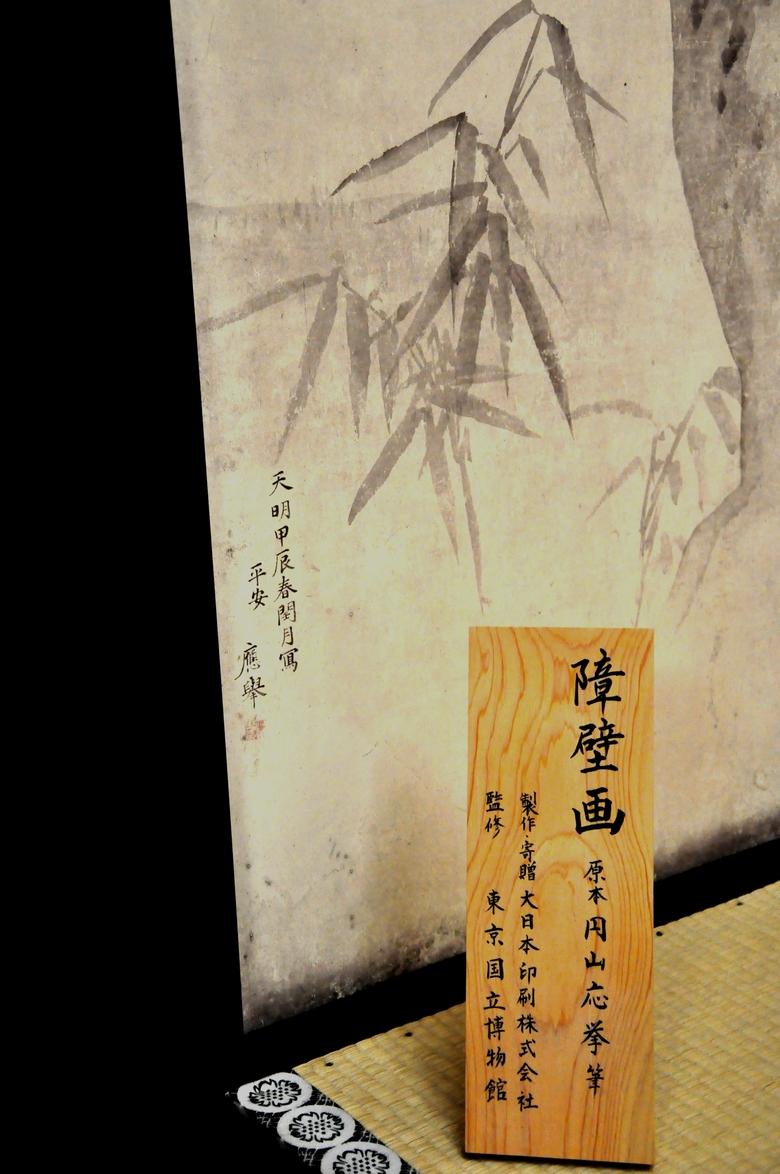 障壁画 原本 円山応挙筆
製作・寄贈 大日本印刷株式会社
監修 東京国立博物館
天明甲辰春閏月寫
平安 應舉